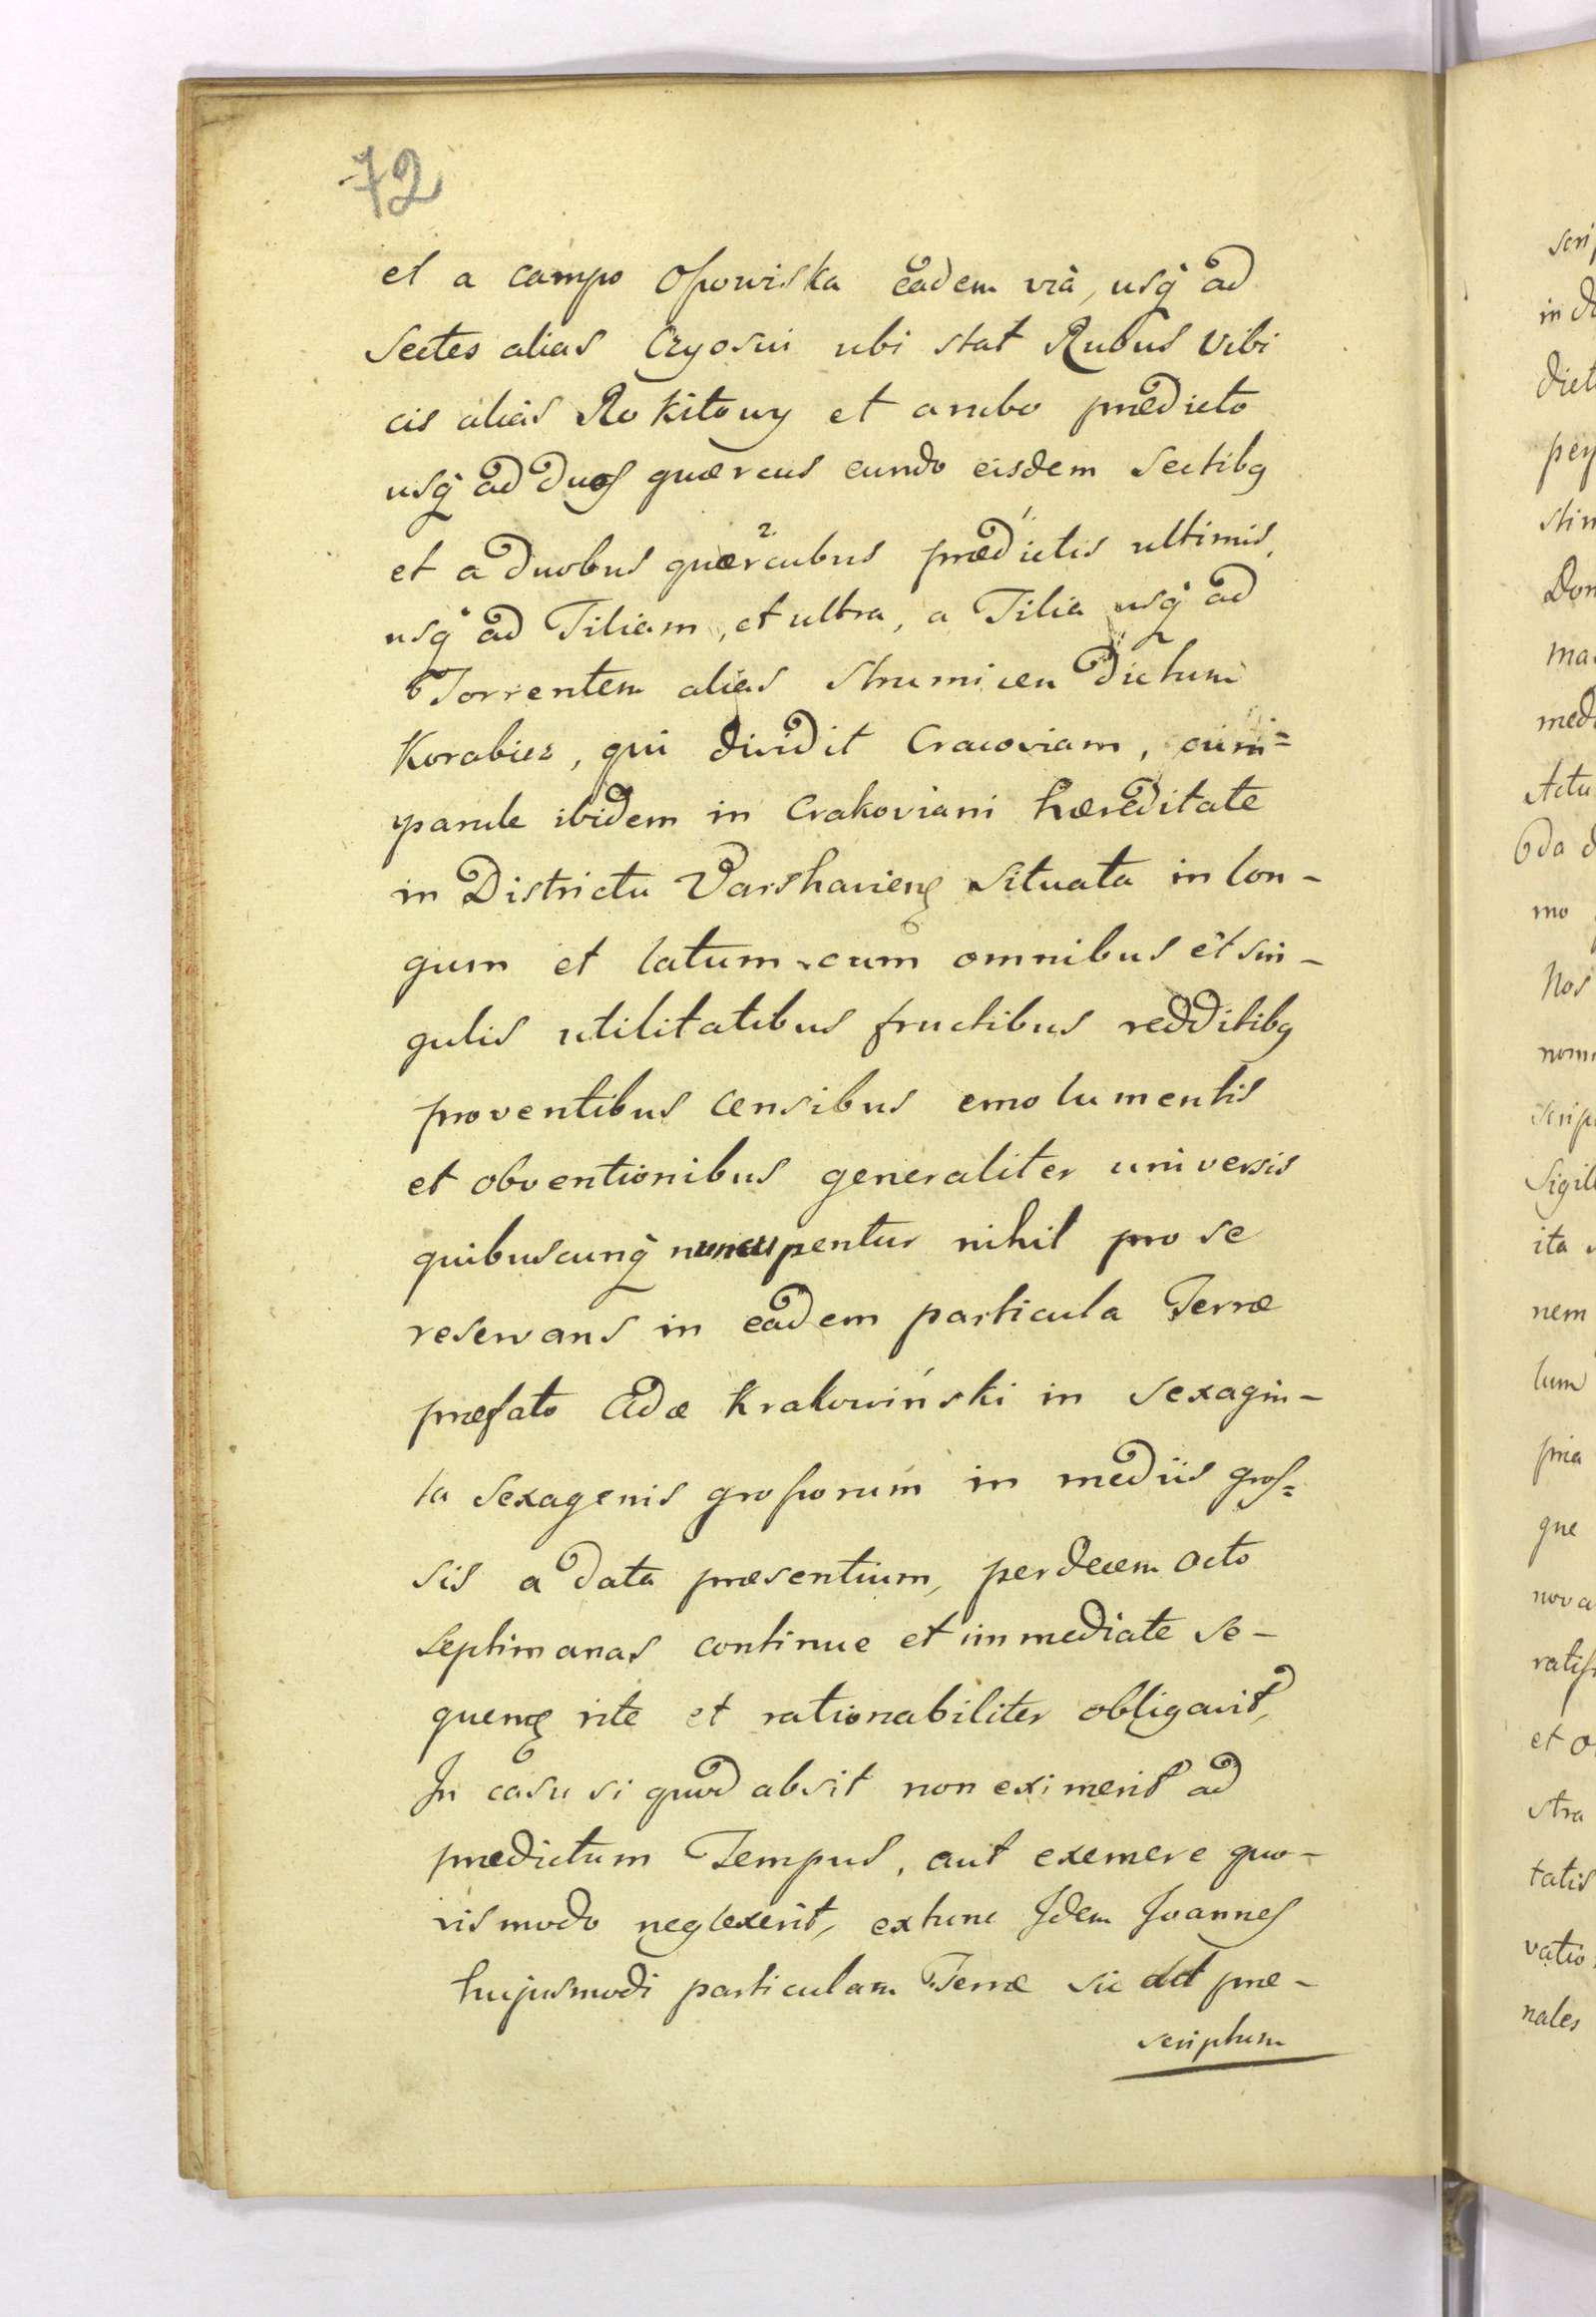 72
et a campo Opowiska eadem viâ, usq ad
Sectes alias Czyosni ubi stat Rubus Vibi
cis aliàs Rokitowy et a rubo prædicto
usq ad duos quærcus eundo eisdem Sectibq
et a duobus quærcubus prædictis ultimis,
usq ad Tiliam, et ultra, a Tilia usq ad
Torrentem alias Strumicen dictum
Korabiez, qui dividit Cracoviam,
ibidem in Crakoviani hæreditate
in Districtu Varshavienq Situata in lon-
gum et latum cum omnibus et sin-
gulis utilitatibus fructibus redditibq
proventibus censibus emolumentis
et obventionibus generaliter universis
quibuscunq nuncupentur nihil pro se
reservans in eadem particula Terræ
præfato Adæ Krakowiński in Sexagin-
ta Sexagenis grossorum in mediis gros=
sis a data præsentium, per decem octo
Septimanas continue et immediate se-
quenq rite et rationabiliter obligavit,
In casu si quod absit non eximerit ad
prædictum Tempus, aut exemere quo-
vis modo neglexerit, extunc Idem Joannes
hujusmodi particulam Terræ sic præ-
scriptum